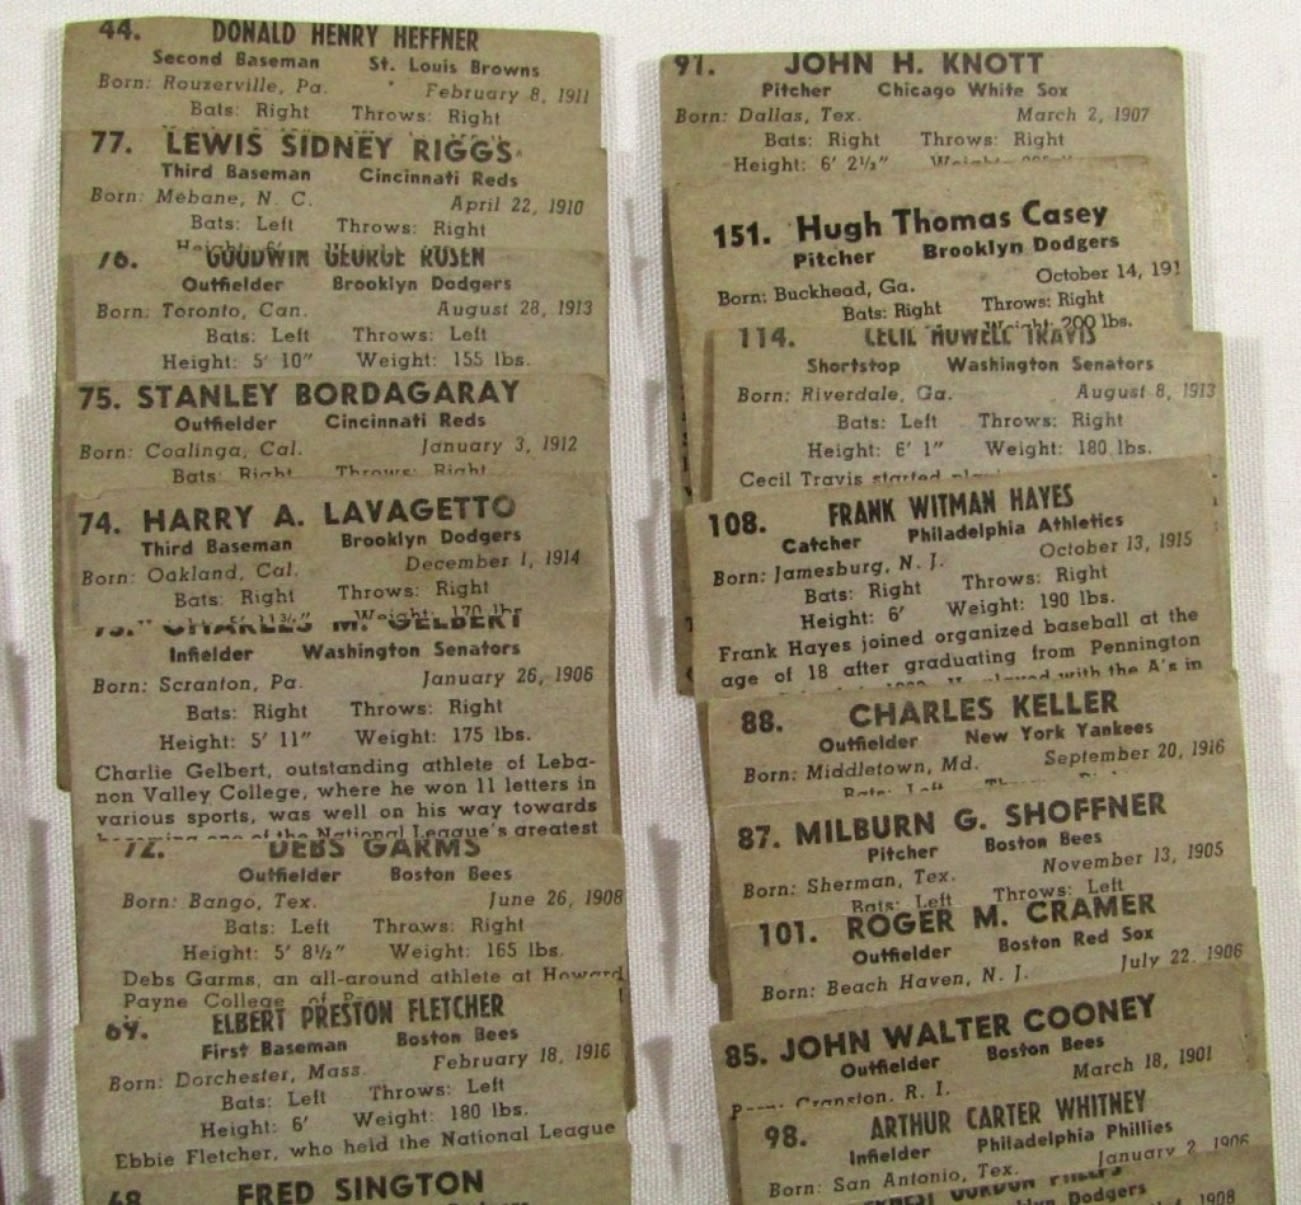 44. DONALD HENRY HEFFNER
Second Baseman St. Louis Browns
Born: Rouzerville, Pa. February 8, 1911
Bats: Right Throws: Right
77. LEWIS SIDNEY RIGGS
Third Baseman Cincinnati Reds
Born: Mebane, N. C. April 22, 1910
Bats: Left Throws: Right
76. GOODWIN GEORGE ROSEN
Outfielder Brooklyn Dodgers
Born: Toronto, Can. August 28, 1913
Bats: Left Throws: Left
Height: 5' 10" Weight: 155 lbs.
75. STANLEY BORDAGARAY
Outfielder Cincinnati Reds
Born: Coalinga, Cal. January 3, 1912
Bats: Right Throws: Right
74. HARRY A. LAVAGETTO
Third Baseman Brooklyn Dodgers
Born: Oakland, Cal. December 1, 1914
Bats: Right Throws: Right
Weight: 170 lbs
73. CHARLES M. GELBERT
Infielder Washington Senators
Born: Scranton, Pa. January 26, 1906
Bats: Right Throws: Right
Height: 5' 11" Weight: 175 lbs.
Charlie Gelbert, outstanding athlete of Leba-
non Valley College, where he won 11 letters in
various sports, was well on his way towards
becoming one of the National League's greatest
72. DEBS GARMS
Outfielder Boston Bees
Born: Bango, Tex. June 26, 1908
Bats: Left Throws: Right
Height: 5' 8½" Weight: 165 lbs.
Debs Garms, an all-around athlete at Howard
Payne College
69. ELBERT PRESTON FLETCHER
First Baseman Boston Bees
Born: Dorchester, Mass. February 18, 1916
Bats: Left Throws: Left
Height: 6' Weight: 180 lbs.
Ebbie Fletcher, who held the National League
68 FRED SINGTON
91. JOHN H. KNOTT
Pitcher Chicago White Sox
Born: Dallas, Tex. March 2, 1907
Bats: Right Throws: Right
Height: 6' 2½" Weight:
151. Hugh Thomas Casey
Pitcher Brooklyn Dodgers
Born: Buckhead, Ga. October 14, 191
Bats: Right Throws: Right
Weight: 200 lbs.
114. CECIL HOWELL TRAVIS
Shortstop Washington Senators
Born: Riverdale, Ga. August 8, 1913
Bats: Left Throws: Right
Height: 6' 1" Weight: 180 lbs.
Cecil Travis started
108. FRANK WITMAN HAYES
Catcher Philadelphia Athletics
Born: Jamesburg, N. J. October 13, 1915
Bats: Right Throws: Right
Height: 6' Weight: 190 lbs.
Frank Hayes joined organized baseball at the
age of 18 after graduating from Pennington
He played with the A's in
88. CHARLES KELLER
Outfielder New York Yankees
Born: Middletown, Md. September 20, 1916
Bats: Left
87. MILBURN G. SHOFFNER
Pitcher Boston Bees
Born: Sherman, Tex. November 13, 1905
Bats: Left Throws: Left
101. ROGER M. CRAMER
Outfielder Boston Red Sox
Born: Beach Haven, N. J. July 22, 1906
85. JOHN WALTER COONEY
Outfielder Boston Bees
Born: Cranston, R. I. March 18, 1901
98. ARTHUR CARTER WHITNEY
Infielder Philadelphia Phillies
Born: San Antonio, Tex. January 2, 1906
GORDON PHELPS
Dodgers
1908